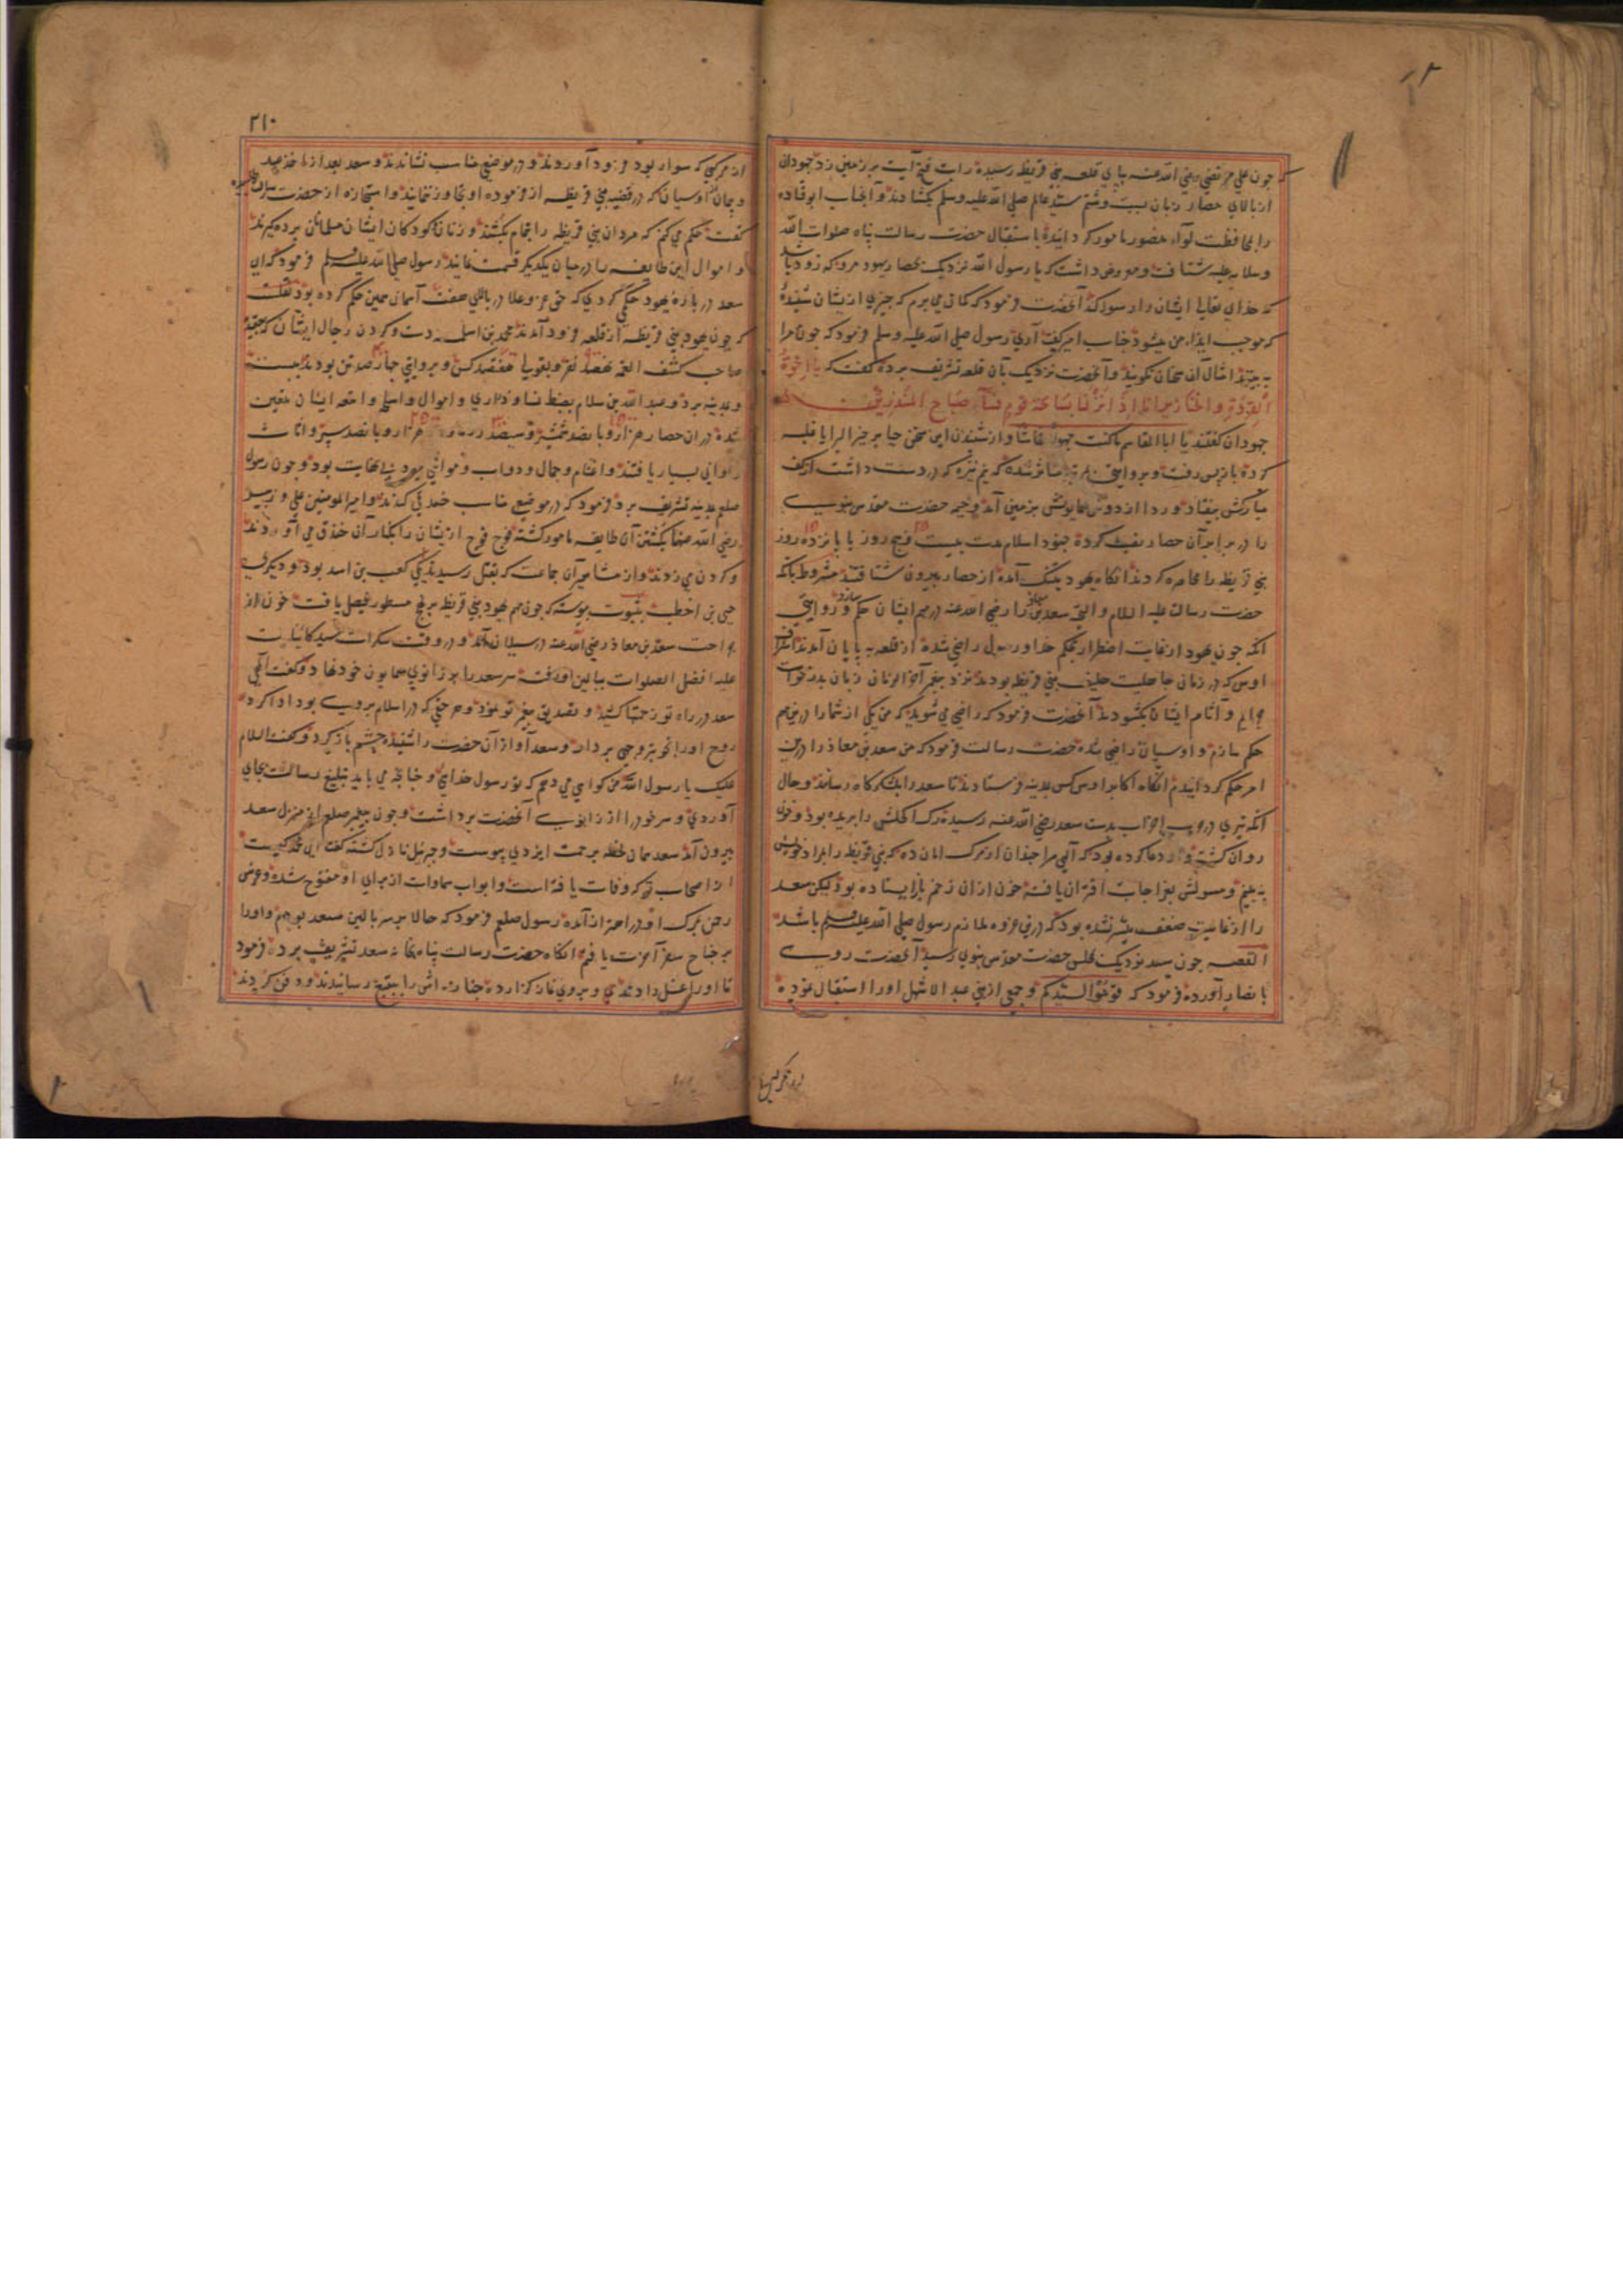 چون علی مرتضی رضی الله عنه بپای قلعه بنی قریظه رسیده رایت فتح آیت بر زمین زد جهودان
از بالای حصار زبان بسب و شتم سید عالم صلی الله علیه وسلم بکشادند و آنجناب ابو قتاده
را بمحافظت لواء منصور مامور کردانیده باستقبال حضرت رسالت پناه صلوات الله
وسلامه علیه شتافت و معروض داشت که یا رسول الله نزدیک بحصار یهود مرو که زود باشد
که خدای تعالی ایشان را رسوا کند آنحضرت فرمود که کمان می برم که چیزی از یشان شنیده
که موجب ایذاء من میشود جناب امیر کفت آری رسول صلی الله علیه وسلم فرمود که چون مرا
به بینند امثال آن سخنان نکویند و آنحضرت نزدیک بآن قلعه تشریف برده کفت که یا اخوة
القردة والخنازیر انا اذا نزلنا بساحة قوم فساء صباح المنذرین
جهودان کفتند یا ابا القاسم ما کنت جهولا فحاشا و از شنیدن این سخن حیا بر خیر البرایا غلبه
کرده باز پس رفت و بروایتی متاثر شده که نیزه که در دست داشت از کف
مبارکش بیفتاد و ردا از دوش همایونش بزمین آمد و خیمه حضرت مقدس نبوی
را در برابر آن حصار نصب کرده جنود اسلام مدت بیست و پنج روز یا پانزده روز
بنی قریظه را محاصره کردند انکاه یهود بتنک آمده از حصار بیرون شتافتند مشروط بانکه
حضرت رسالت علیه السلام والتحیه سعد بن معاذ را رضی الله عنه در مهم ایشان حکم سازد و روایتی
انکه چون یهود از غایت اضطرار بحکم خدا و رسول راضی شده از قلعه به پایان آمدند اشراف
اوس که در زمان جاهلیت حلیف بنی قریظه بودند نزد پیغمبر آخر الزمان زبان بدرخواست
جرایم و آثام ایشان بکشودند آنحضرت فرمود که راضی می شوید که من یکی از شما را درین مهم
حکم سازم و اوسیان راضی شده حضرت رسالت فرمود که من سعد بن معاذ را درین
امر حکم کردانیدم انکاه اکابر اوس کس بمدینه فرستادند تا سعد را بلشکرکاه رساند و حال
انکه تیری در حرب احزاب بدست سعد رضی الله عنه رسیده رک اکحلش را بریده بود و خون
روان کشته و او دعا کرده بود که آلهی مرا چندان از مرک امان ده که بنی قریظه را بمراد خویش
به بینم و مسولش بعز اجابت اقتران یافته خون از ان زخم باز ایستاده بود لیکن سعد
را از غایت ضعف میسر نشده بود که درین غزوه ملازم رسول صلی الله علیه وسلم باشد
القصه چون سعد نزدیک مجلس حضرت مقدس نبوی رسید آنحضرت روی
بانصار آورده فرمود که قوموا لسیدکم و جمعی از بنی عبد الاشهل او را استقبال نموده
۲۱۰
از مرکبی که سوار بود فرود آوردند و در موضع مناسب نشاندند و سعد بعد از اخذ عهد
و پیمان از اوسیان که در قضیه بنی قریظه از فرموده او تجاوز ننمایند و استجازه از حضرت رسالت
کفت حکم می کنم که مردان بنی قریظه را بتمام بکشند و زنان و کودکان ایشان مسلمانان برده کیرند
و اموال این طایفه را در میان یکدیکر قسمت نمایند رسول صلی الله علیه وسلم فرمود که ای
سعد در باره یهود حکمی کردی که حق عز وعلا در بالای هفت آسمان همین حکم کرده بود نقلست
که چون یهود بنی قریظه از قلعه فرود آمدند محمد بن اسلمه دست و کردن رجال ایشان که بعقیده
صاحب کشف الغمه نهصد نفر و بقولی هفتصد کس و بروایتی چهارصد تن بودند ببست
و بمدینه برد و عبد الله بن سلام بضبط نسا و ذراری و اموال و اسلحه و امتعه ایشان معین
شده در ان حصار هزار و پانصد شمشیر و سیصد زره و هزار و پانصد سپر و اثاث
و اوانی بسیار یافتند و اغنام و جمال و دواب و مواشی بیرون از نهایت بود و چون رسول
صلعم بمدینه تشریف برد فرمود که در موضع مناسب خندقی کندند و امیر المومنین علی و زبیر
رضی الله عنهما بکشتن آن طایفه مامور کشته فوج فوج از یشان را بکنار آن خندق می آوردند
و کردن می زدند و از مشاهیر آن جماعت که بقتل رسیدند یکی کعب بن اسد بود و دیکری
حیی بن اخطب بثبوت پیوسته که چون مهم یهود بنی قریظه بر نهج مسطور فیصل یافت خون از
جراحت سعد بن معاذ رضی الله عنه در سیلان آمد و در وقت سکرات سید کاینات
علیه افضل الصلوات ببالین او رفته سر سعد را بر زانوی همایون خود نهاد و کفت آلهی
سعد در راه تو زحمتها کشید و تصدیق پیغمبر تو نمود و هر حقی که در اسلام بروی بود ادا کرد
روح او را بخوبترین وجهی بردار و سعد آواز آن حضرت را شنیده چشم باز کرد و کفت السلام
علیک یا رسول الله من کواهی می دهم که تو رسول خدایی و چنانچه می باید تبلیغ رسالت بجای
آوردی و سر خود را از زانوی آنحضرت برداشت و چون پیغمبر صلعم از منزل سعد
بیرون آمد سعد همان لحظه برحمت ایزدی پیوست و جبرئیل نازل کشته کفت ای محمد کیست
از اصحاب تو که وفات یافته است و ابواب سماوات از برای او مفتوح شده و عرش
رحمن بمرک او در اهتزاز آمده رسول صلعم فرمود که حالا بر سر بالین سعد بودم و او را
بر جناح سفر آخرت یافتم انکاه حضرت رسالت پناه بخانه سعد تشریف برده فرمود
تا او را غسل دادند و بروی نماز کزارده جنازه اش را ببقیع رسانیدند و دفن کردند